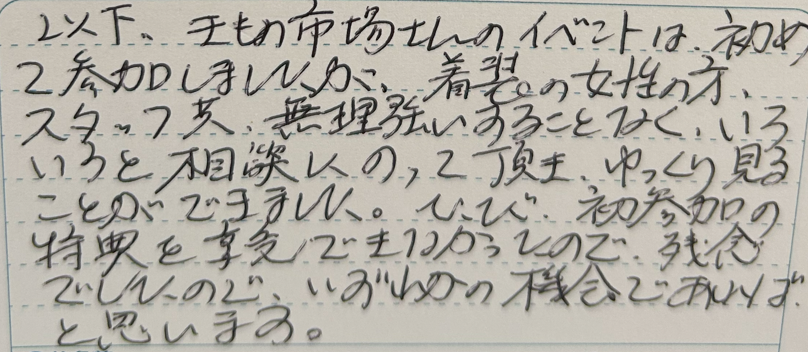 以下、きもの市場さんのイベントは、初め
て参加しましたが、着装の女性の方、
スタッフ共、無理強いすることなく、いろ
いろと相談にのって頂き、ゆっくり見る
ことができました。ただ、初参加の
特典を享受できなかったので、残念
でしたので、いずれかの機会であれば
と思います。